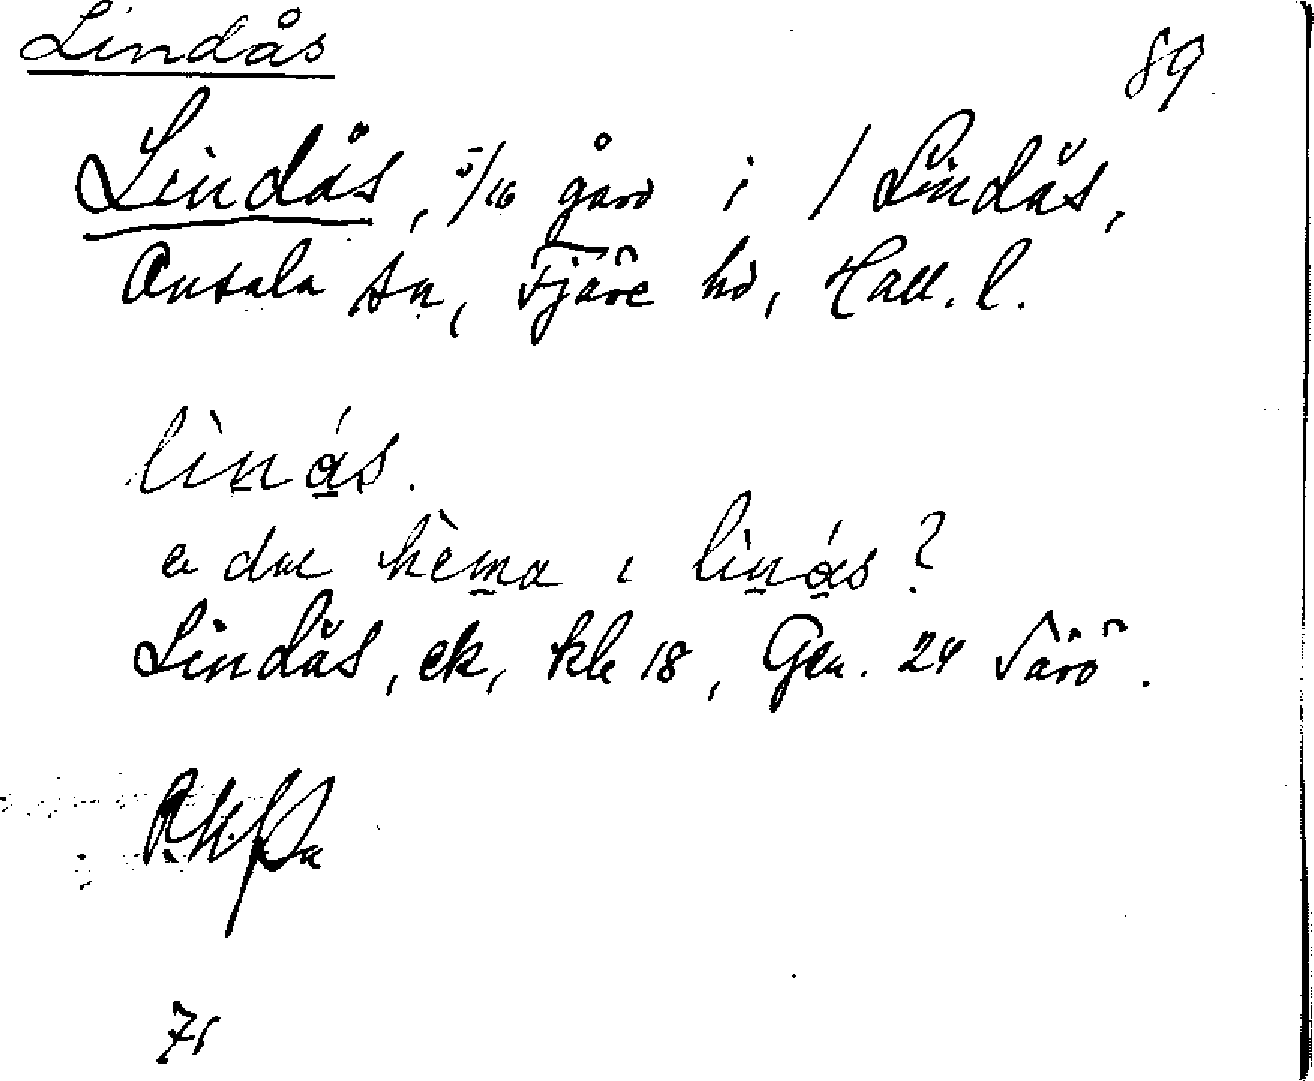 Lindås 89
Lindås, 5/16 gård i / Lindås,
Onsala sn, Fjäre hd, Hall. l.
lìnás.
e du hèma i lìnás?
Lindås, ek, kk 18, Gen. 24 Särö.
71